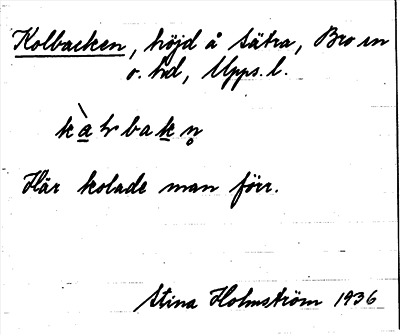 Kolbacken, höjd å Sätra, Bro sn
o. hd, Upps. l.
kàlbakn̥
Här kolade man förr.
Stina Holmström 1936